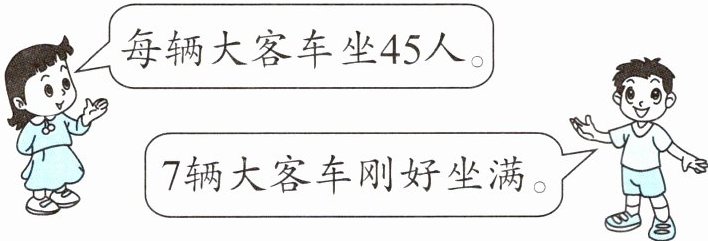 每辆大客车坐45人。
7辆大客车刚好坐满。